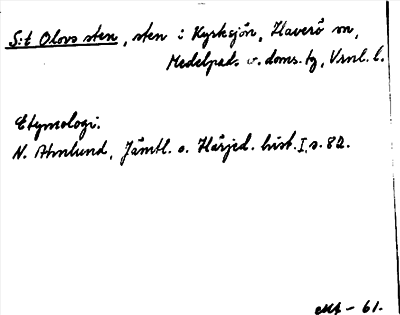 S:t Olovs sten, sten i Kyrksjön, Haverö sn,
Medelpads v. doms. tg, Vrnl. l.
Etymologi.
N. Ahnlund, Jämtl. o. Härjed. hist. I, s. 82.
- 61.